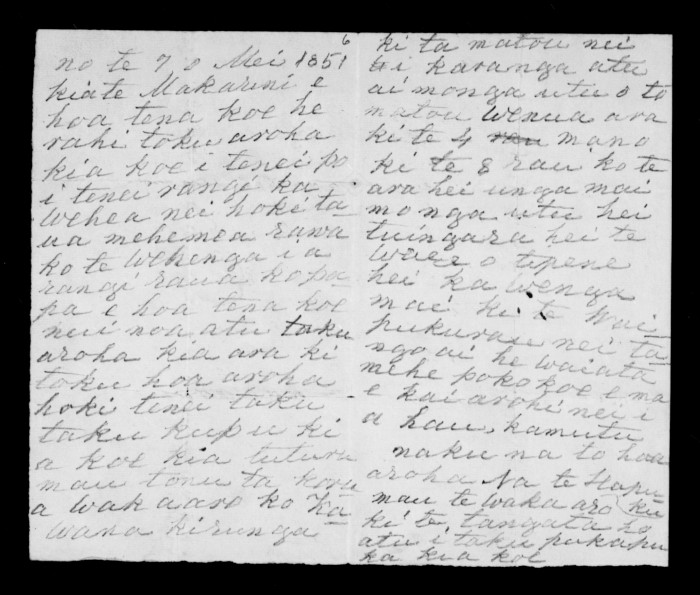 no te 7 o Mei 1851
6
kiate Makarini e
hoa tena koe he
rahi toku aroha
kia koe i tenei po
i tenei rangi ka
wehea nei hoki ta-
ua mehemea rawa
ko te wehenga i a
rangi raua ko pa-
pa e hoa tena koe
nui noa atu taku
aroha kia ara ki
toku hoa aroha
hoki tenei taku
taku kupu ki
a koe kia tuturu
mau tonu ta koru
a wakaaro ko Ka-
wana kirunga
ki ta matou nei
i karanga atu
ai monga utu o to
matou wenua ara
ki te 4 rau mano
ki te 8 rau ko te
ara hei unga mai
mo nga utu hei
tuingara hei te
waee o tipene
hei ka wenga
mai ki te Wai-
pukurau nei ta-
ngo ai he waiata
mehe poko koe e ma
e kai arohi nei i
a hau, kamutu
naku na to hoa
aroha Na te Hapu-
ku
mau te waka aro
ki te tangata ho
atu i taku pukapu
ka kia koe